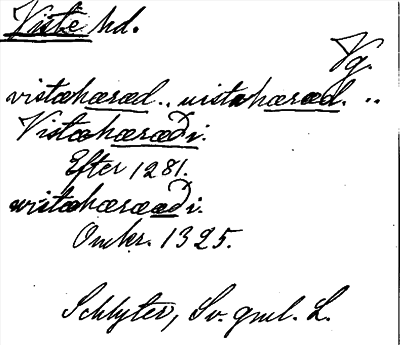 Viste hd.
Vg.
vistæhæræd.. uistæhæræd. ..
Vistæhæræði.
Efter 1281.
wistæhæræædi.
Omkr. 1325.
Schlyter, Sv. gml. L.